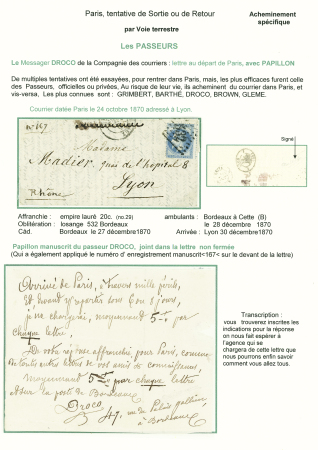 Paris, tentative de Sortie ou de Retour
Acheminement
spécifique
par Voie terrestre
Les PASSEURS
Le Messager DROCO de la Compagnie des courriers : lettre au départ de Paris, avec PAPILLON
De multiples tentatives ont été essayées, pour rentrer dans Paris, mais, les plus efficaces furent celle
des Passeurs, officielles ou privées, Au risque de leur vie, ils acheminent du courrier dans Paris, et
vis-versa, Les plus connues sont : GRIMBERT, BARTHÉ, DROCO, BROWN, GLEME.
Courrier datée Paris le 24 octobre 1870 adressé à Lyon.
Signé
n° 167
Madame
Madier, quai de l'hopital 8
Lyon
Rhône
Affranchie : empire lauré 20c. (no.29)
ambulants : Bordeaux à Cette (B)
le 28 décembre 1870
Oblitération : losange 532 Bordeaux
Cad. Bordeaux le 27 décembre1870
Arrivée : Lyon 30 décembre1870
Papillon manuscrit du passeur DROCO, joint dans la lettre non fermée
(Qui a également appliqué le numéro d' enregistrement manuscrit<167< sur le devant de la lettre)
Arrivé de Paris, à travers mille périls,
Et devant repartir sous 6 ou 8 jours,
je me chargerai, moyennant 5 par
chaque lettre
De votre réponse affranchie pour Paris, comme
de toutes autres lettres de vos amis de connaissances,
moyennant 5 par chaque lettre
à Bordeaux
Droco
47, rue du Palais gallien
à Bordeaux
Transcription :
vous trouverez inscrites les
indications pour la réponse
on nous fait espérer à
l'agence qui se
chargera de cette lettre
que nous pourrons enfin savoir
comment vous allez tous.